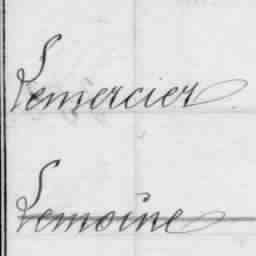 Lemercier
Lemoine